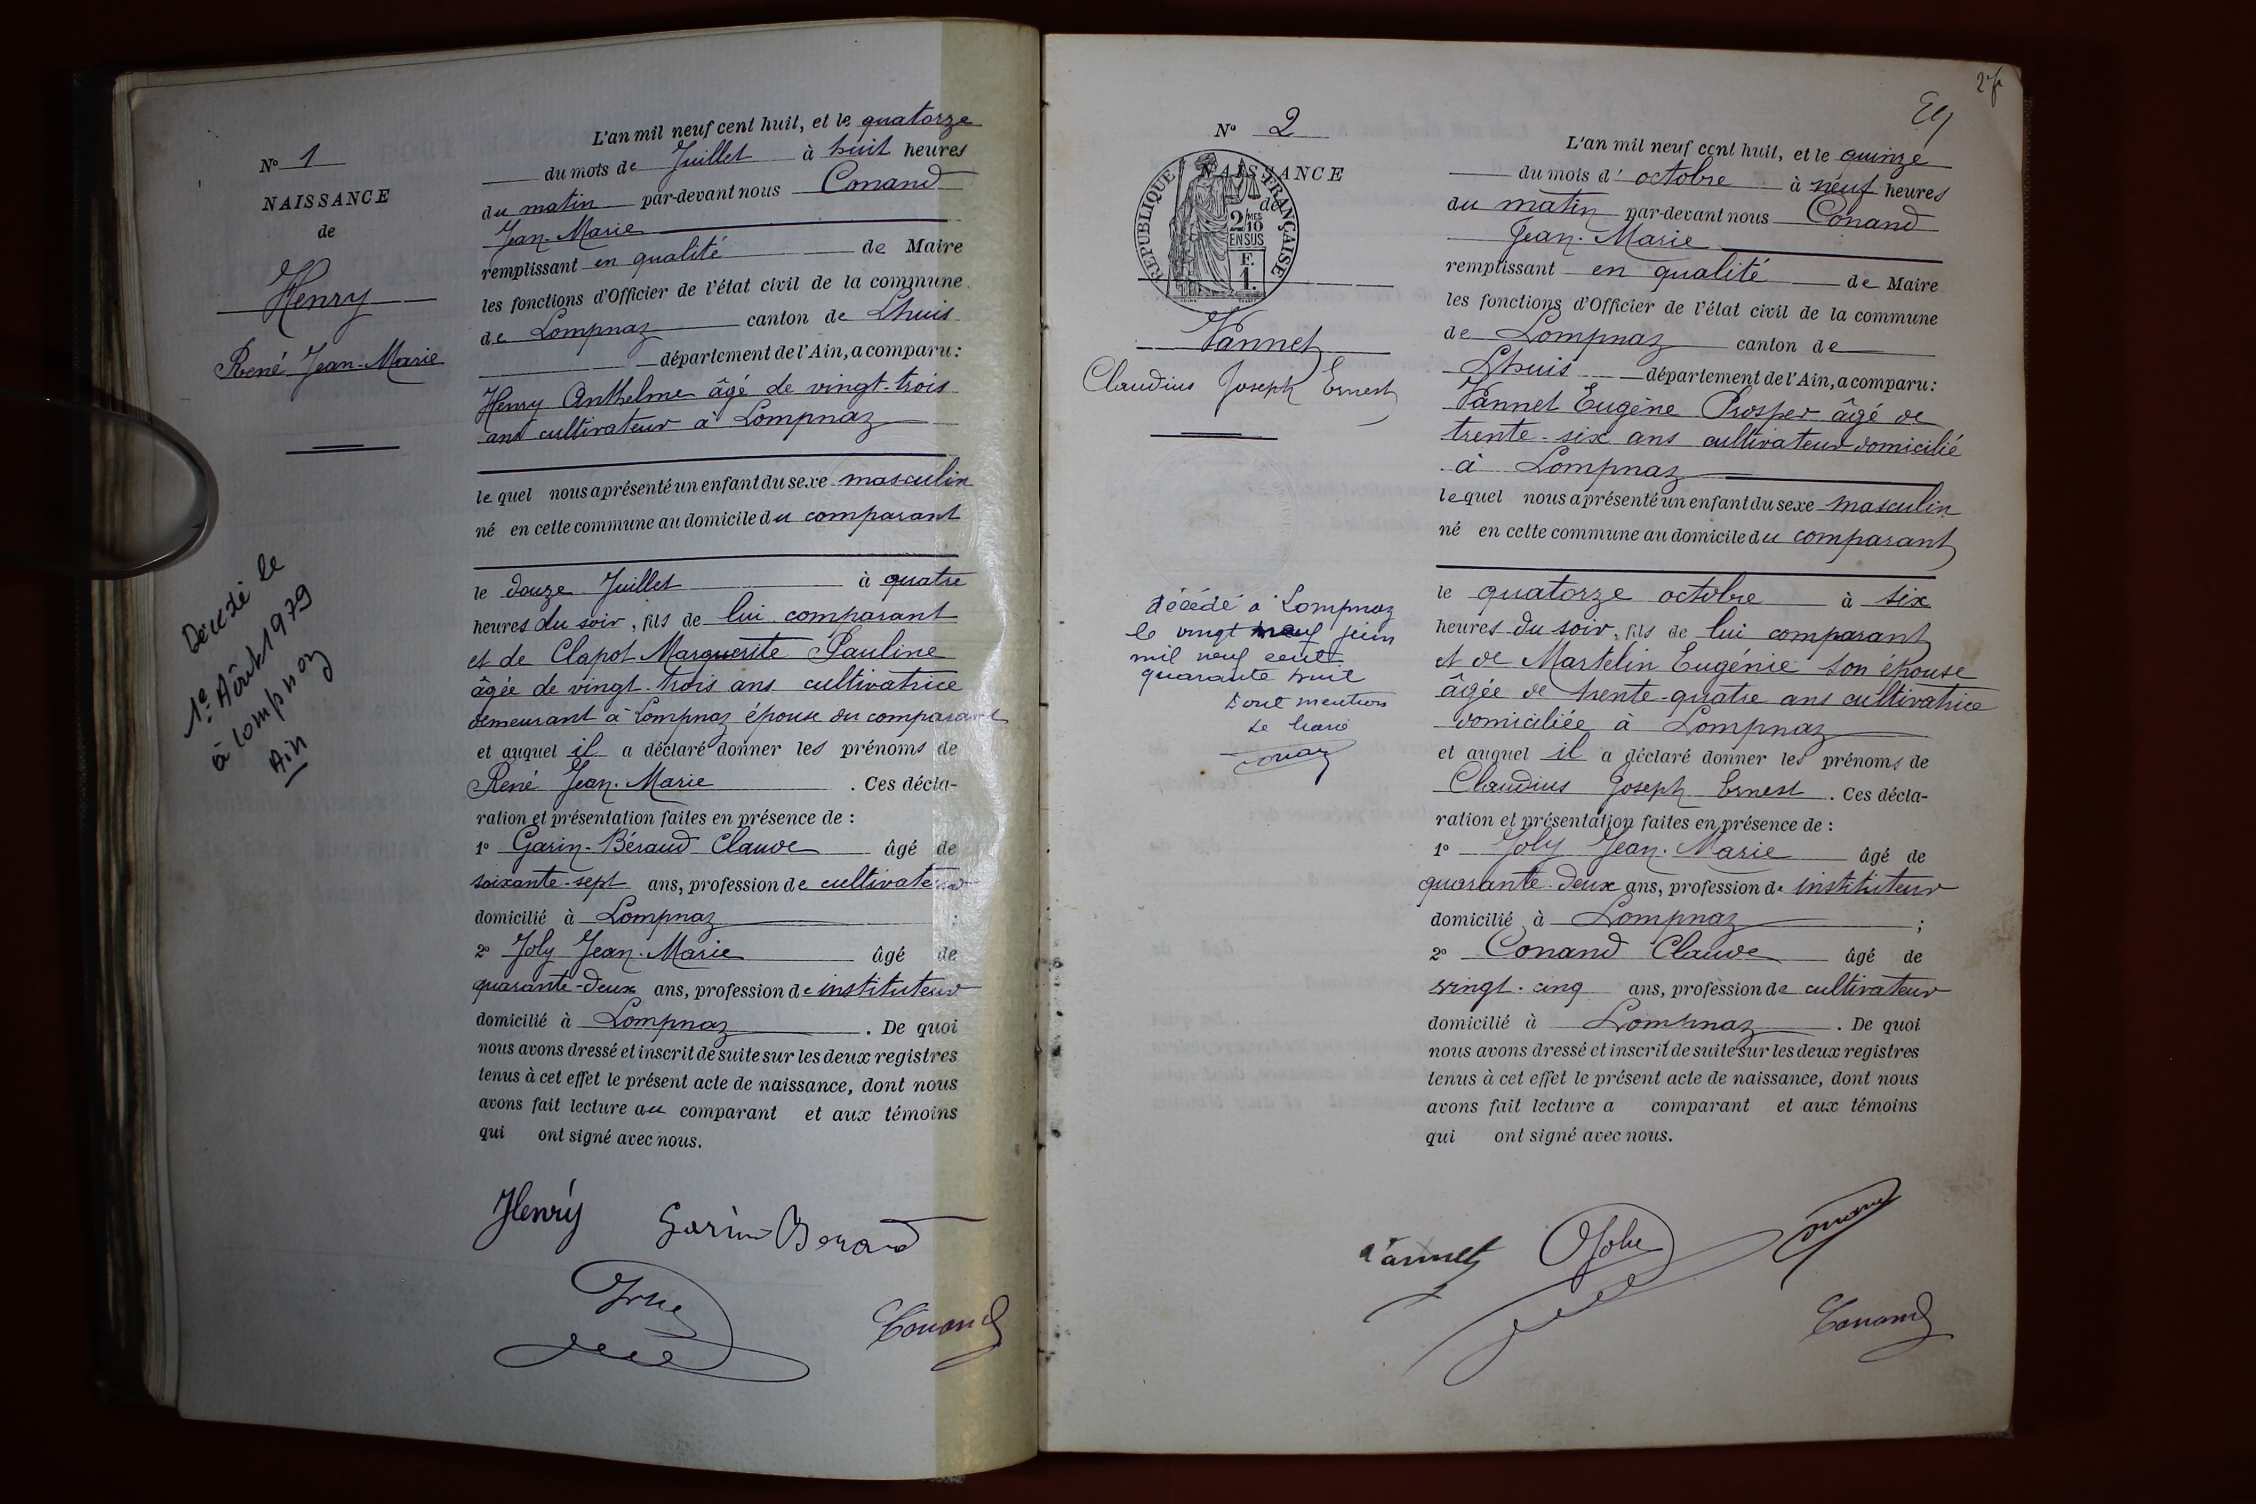 N° 1
NAISSANCE
de
Henry
René Jean-Marie
Décédé le
1er Août 1979
à Lompnaz
Ain
L'an mil neuf cent huit, et le quatorze
du mois de Juillet à huit heures
du matin par-devant nous Conand
Jean-Marie
remplissant en qualité de Maire
les fonctions d'Officier de l'état civil de la commune
de Lompnaz canton de Lhuis
département de l'Ain, a comparu :
Henry Anthelme âgé de vingt-trois
ans cultivateur à Lompnaz
lequel nous a présenté un enfant du sexe masculin
né en cette commune au domicile du comparant
le douze Juillet à quatre
heures du soir, fils de lui comparant
et de Clapot Marguerite Pauline
âgée de vingt-trois ans cultivatrice
demeurant à Lompnaz épouse du comparant
et auquel il a déclaré donner les prénoms de
René Jean-Marie . Ces décla-
ration et présentation faites en présence de :
1° Garin-Béraud Claude âgé de
soixante-sept ans, profession de cultivateur
domicilié à Lompnaz ;
2° Joly Jean-Marie âgé de
quarante-deux ans, profession de instituteur
domicilié à Lompnaz . De quoi
nous avons dressé et inscrit de suite sur les deux registres
tenus à cet effet le présent acte de naissance, dont nous
avons fait lecture au comparant et aux témoins
qui ont signé avec nous.
Henry Garin Beraud
Conand
2 f
N° 2
NAISSANCE
de
RÉPUBLIQUE FRANÇAISE
2/10 MES
EN SUS
F.
1.
Vannet
Claudius Joseph Ernest
décédé à Lompnaz
le vingt neuf juin
mil neuf cent
quarante huit
Dont mention
Le Maire
L'an mil neuf cent huit, et le quinze
du mois d'octobre à neuf heures
du matin par-devant nous Conand
Jean-Marie
remplissant en qualité de Maire
les fonctions d'Officier de l'état civil de la commune
de Lompnaz canton de
Lhuis département de l'Ain, a comparu :
Vannet Eugène Prosper âgé de
trente-six ans cultivateur domicilié
à Lompnaz
lequel nous a présenté un enfant du sexe masculin
né en cette commune au domicile du comparant
le quatorze octobre à six
heures du soir, fils de lui comparant
et de Martelin Eugénie son épouse
âgée de trente-quatre ans cultivatrice
domiciliée à Lompnaz
et auquel il a déclaré donner les prénoms de
Claudius Joseph Ernest . Ces décla-
ration et présentation faites en présence de :
1° Joly Jean-Marie âgé de
quarante-deux ans, profession de instituteur
domicilié à Lompnaz ;
2° Conand Claude âgé de
vingt-cinq ans, profession de cultivateur
domicilié à Lompnaz . De quoi
nous avons dressé et inscrit de suite sur les deux registres
tenus à cet effet le présent acte de naissance, dont nous
avons fait lecture a comparant et aux témoins
qui ont signé avec nous.
Vannet Joly Conand
Conand